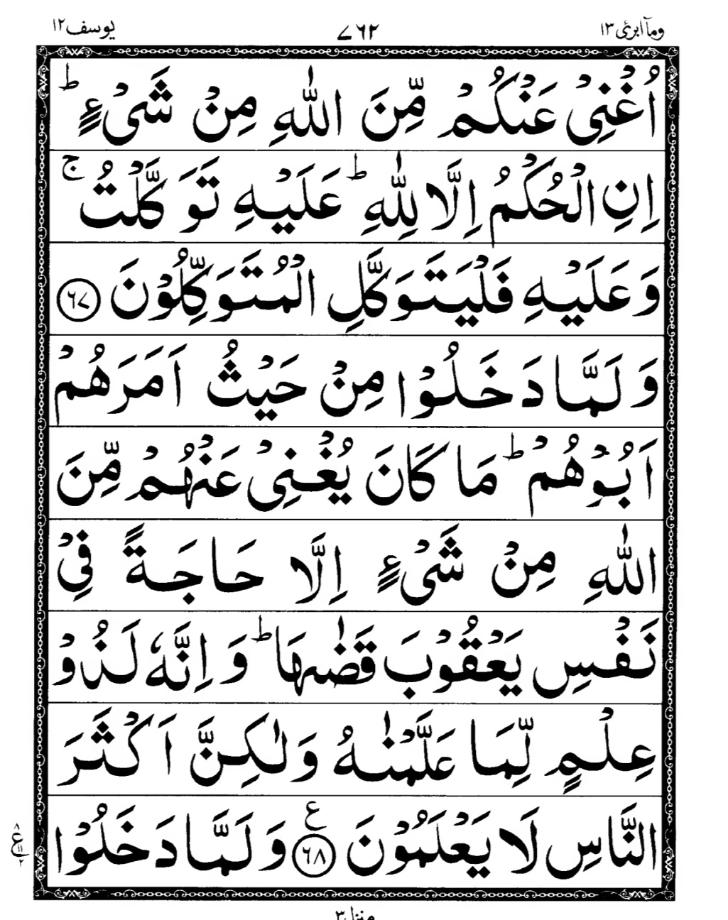 وما ابرئ ١٣ ٧٦٢ يوسف ١٢
اُغْنِىْ عَنْكُمْ مِّنَ اللّٰهِ مِنْ شَىْءٍ ؕ
اِنِ الْحُكْمُ اِلَّا لِلّٰهِ ؕ عَلَيْهِ تَوَكَّلْتُ ۚ
وَعَلَيْهِ فَلْيَتَوَكَّلِ الْمُتَوَكِّلُوْنَ ﴿٦٧﴾
وَلَمَّا دَخَلُوْا مِنْ حَيْثُ اَمَرَهُمْ
اَبُوْهُمْ ؕ مَا كَانَ يُغْنِىْ عَنْهُمْ مِّنَ
اللّٰهِ مِنْ شَىْءٍ اِلَّا حَاجَةً فِىْ
نَفْسِ يَعْقُوْبَ قَضٰٮهَا ؕ وَاِنَّهٗ لَذُوْ
عِلْمٍ لِّمَا عَلَّمْنٰهُ وَلٰكِنَّ اَكْثَرَ
النَّاسِ لَا يَعْلَمُوْنَ ﴿٦٨﴾ ع وَلَمَّا دَخَلُوْا
ع
منزل ٣